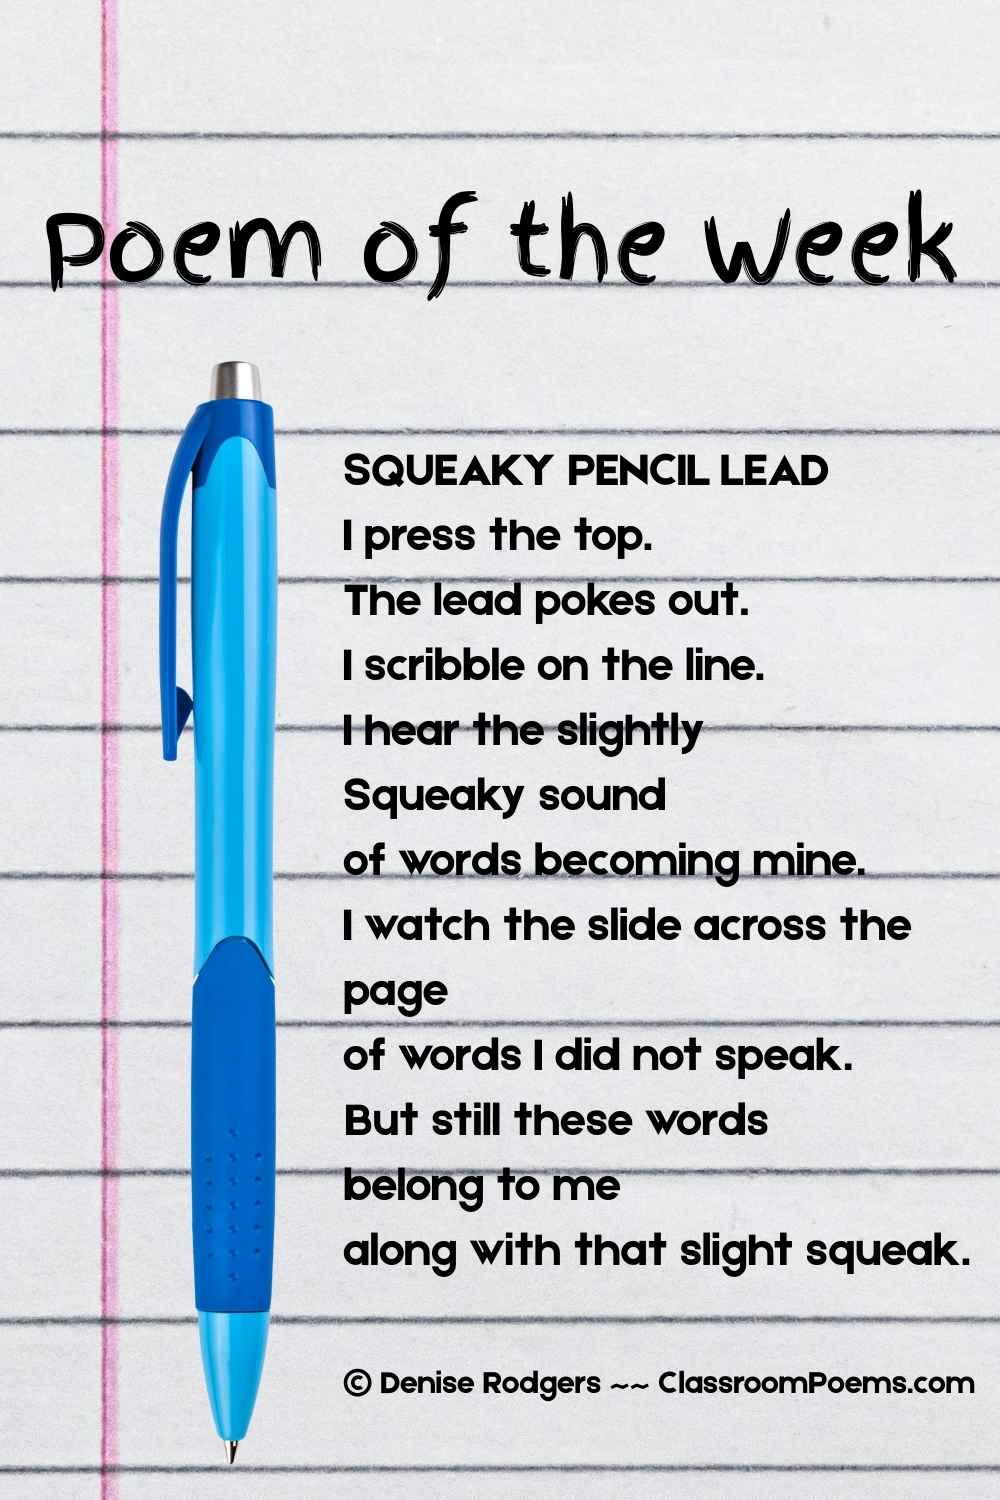 Poem of the Week
SQUEAKY PENCIL LEAD
I press the top.
The lead pokes out.
I scribble on the line.
I hear the slightly
Squeaky sound
of words becoming mine.
I watch the slide across the
page
of words I did not speak.
But still these words
belong to me
along with that slight squeak.
© Denise Rodgers ~~ ClassroomPoems.com